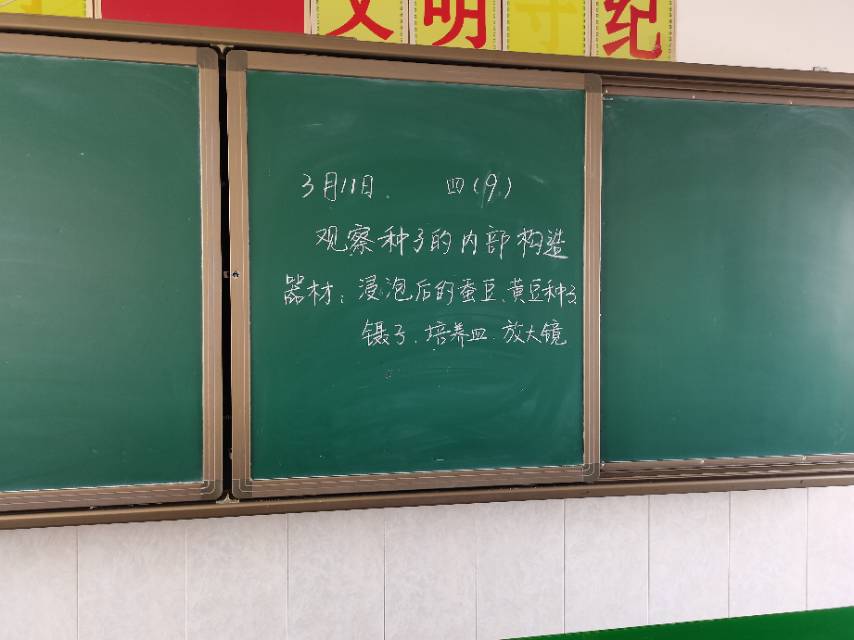 文明守纪
3月11日. 四(9)
观察种子的内部构造
器材:浸泡后的蚕豆、黄豆种子
镊子、培养皿、放大镜